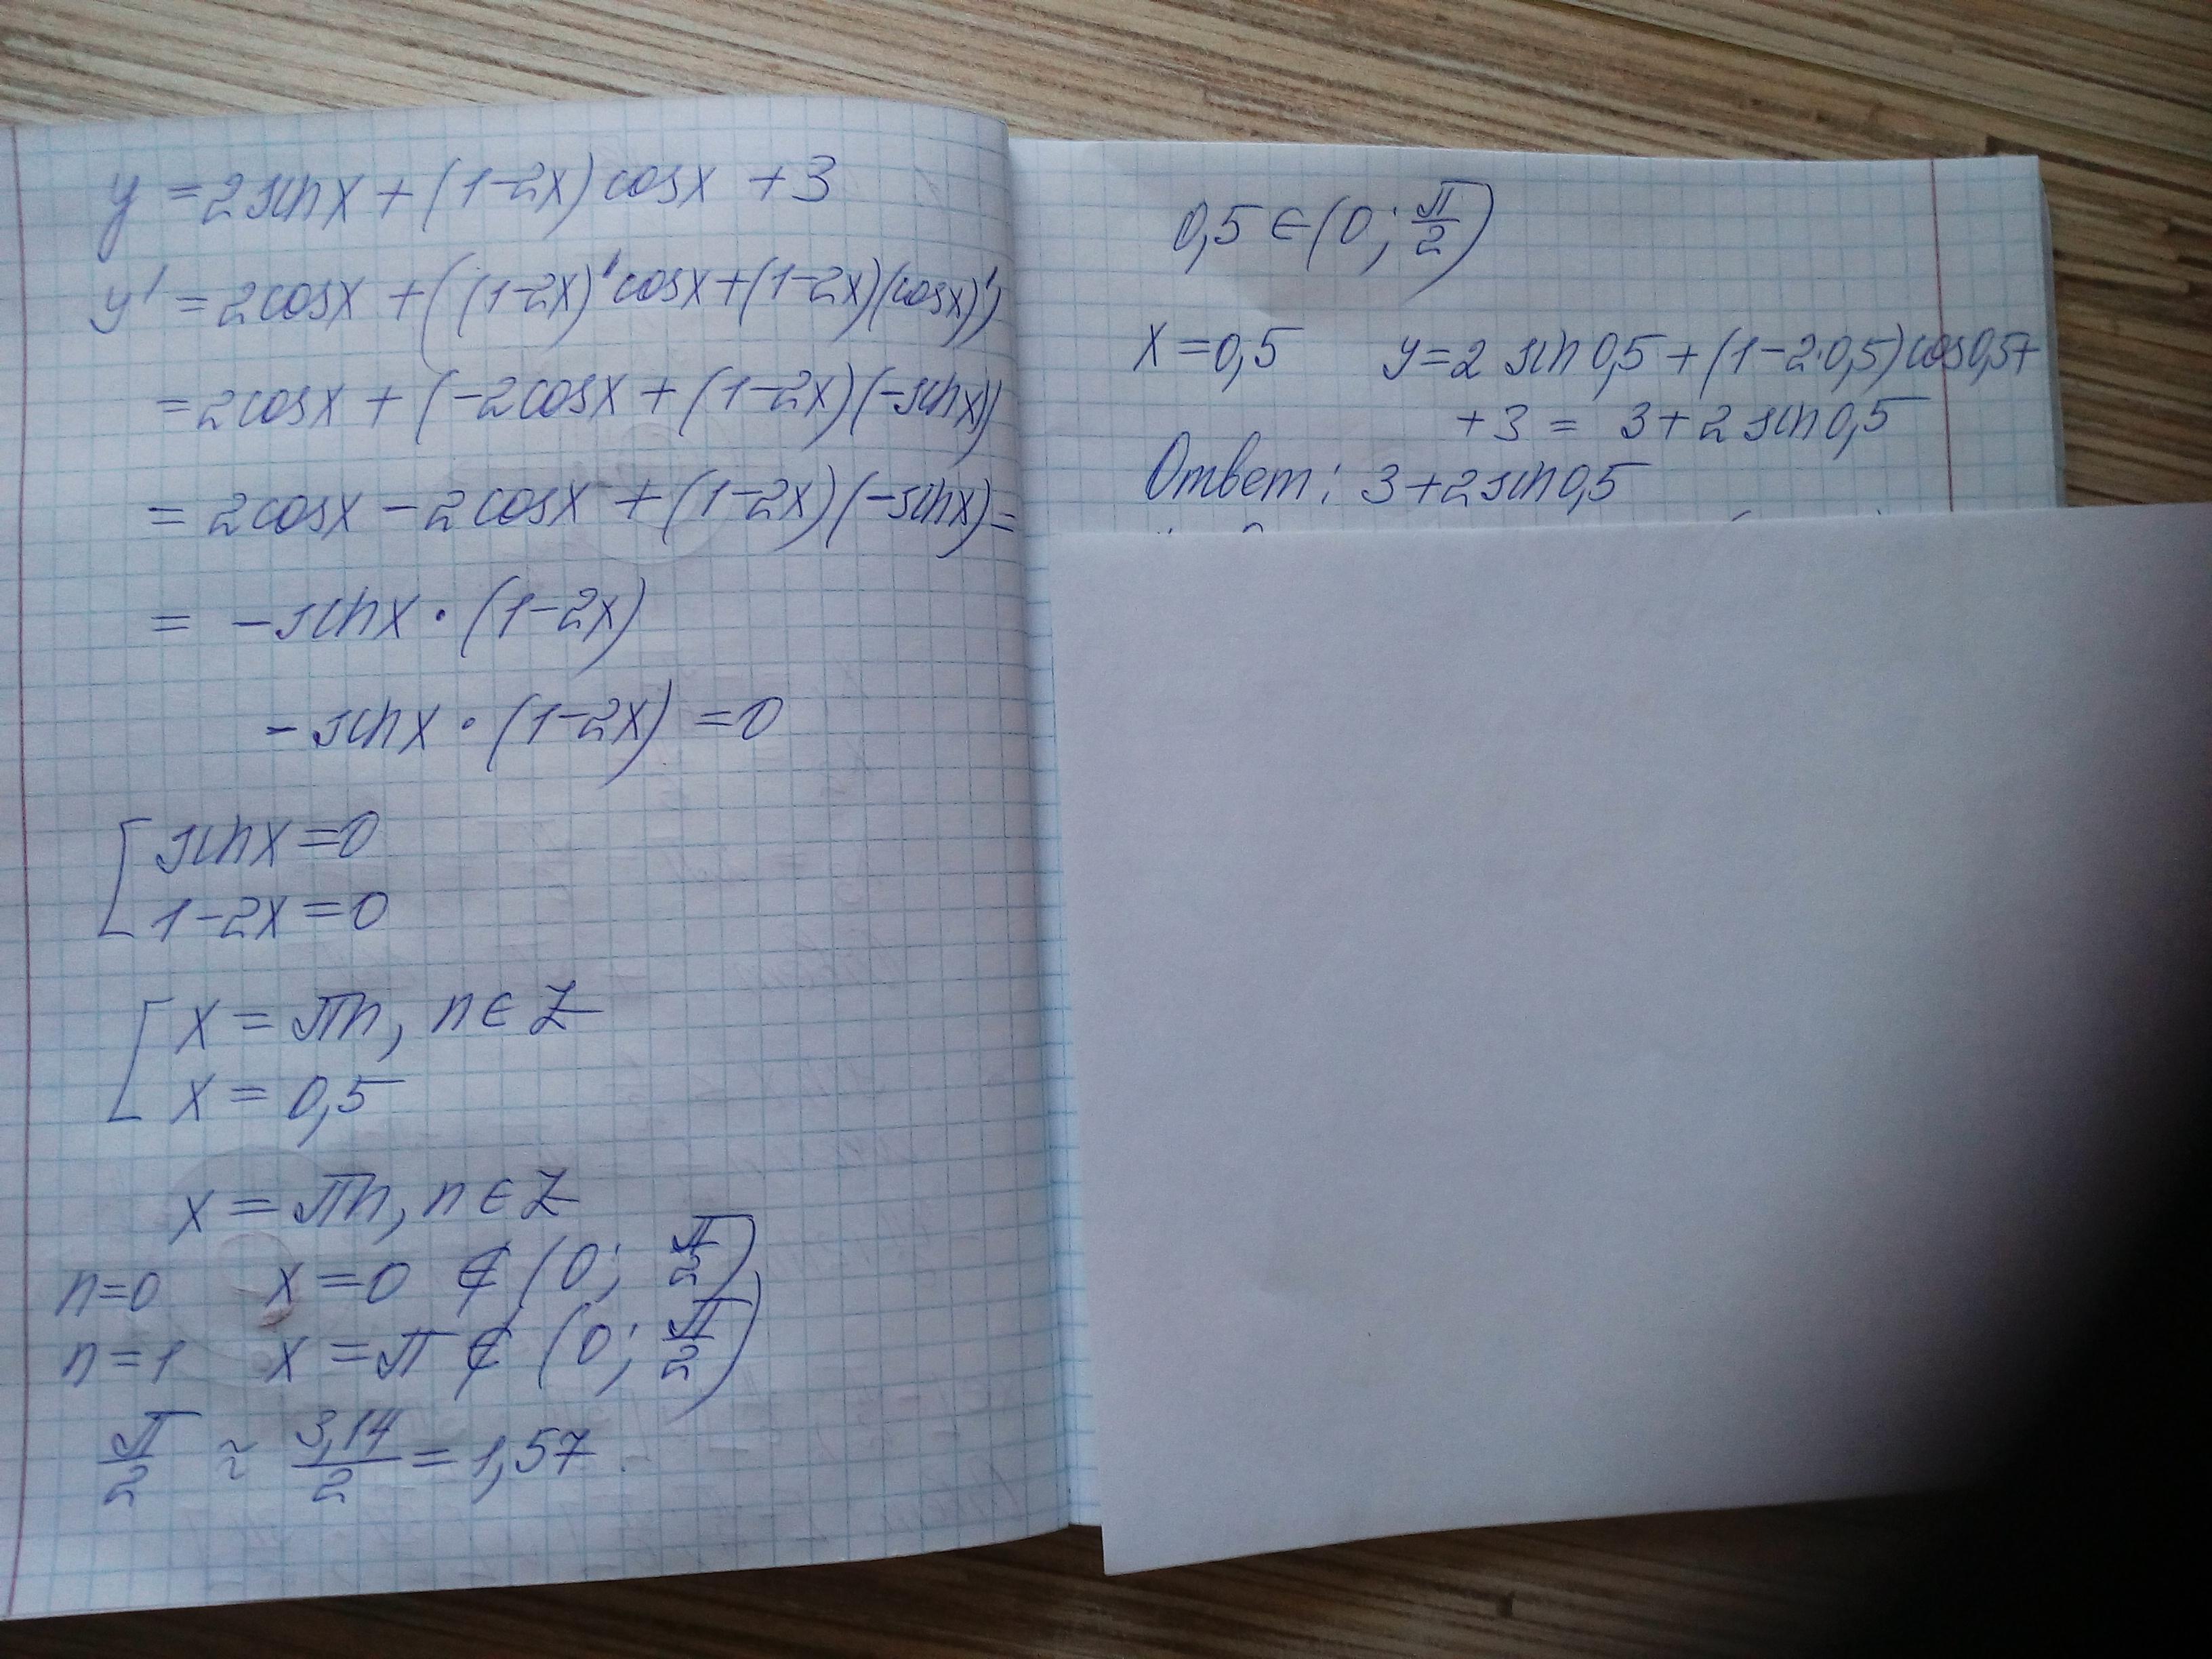 y = 2sinx + (1-2x)cosx + 3
y' = 2cosx + ((1-2x)'cosx + (1-2x)(cosx)')
= 2cosx + (-2cosx + (1-2x)(-sinx))
= 2cosx - 2cosx + (1-2x)(-sinx) =
= -sinx · (1-2x)
-sinx · (1-2x) = 0
[ sinx = 0
1-2x = 0
[ x = πn, n ∈ Z
x = 0,5
x = πn, n ∈ Z
n=0 x = 0 ∉ (0; π/2)
n=1 x = π ∉ (0; π/2)
π/2 ≈ 3,14/2 = 1,57
0,5 ∈ (0; π/2)
x = 0,5 y = 2 sin 0,5 + (1-2·0,5)cos0,5+
+3 = 3 + 2 sin 0,5
Ответ: 3+2sin0,5